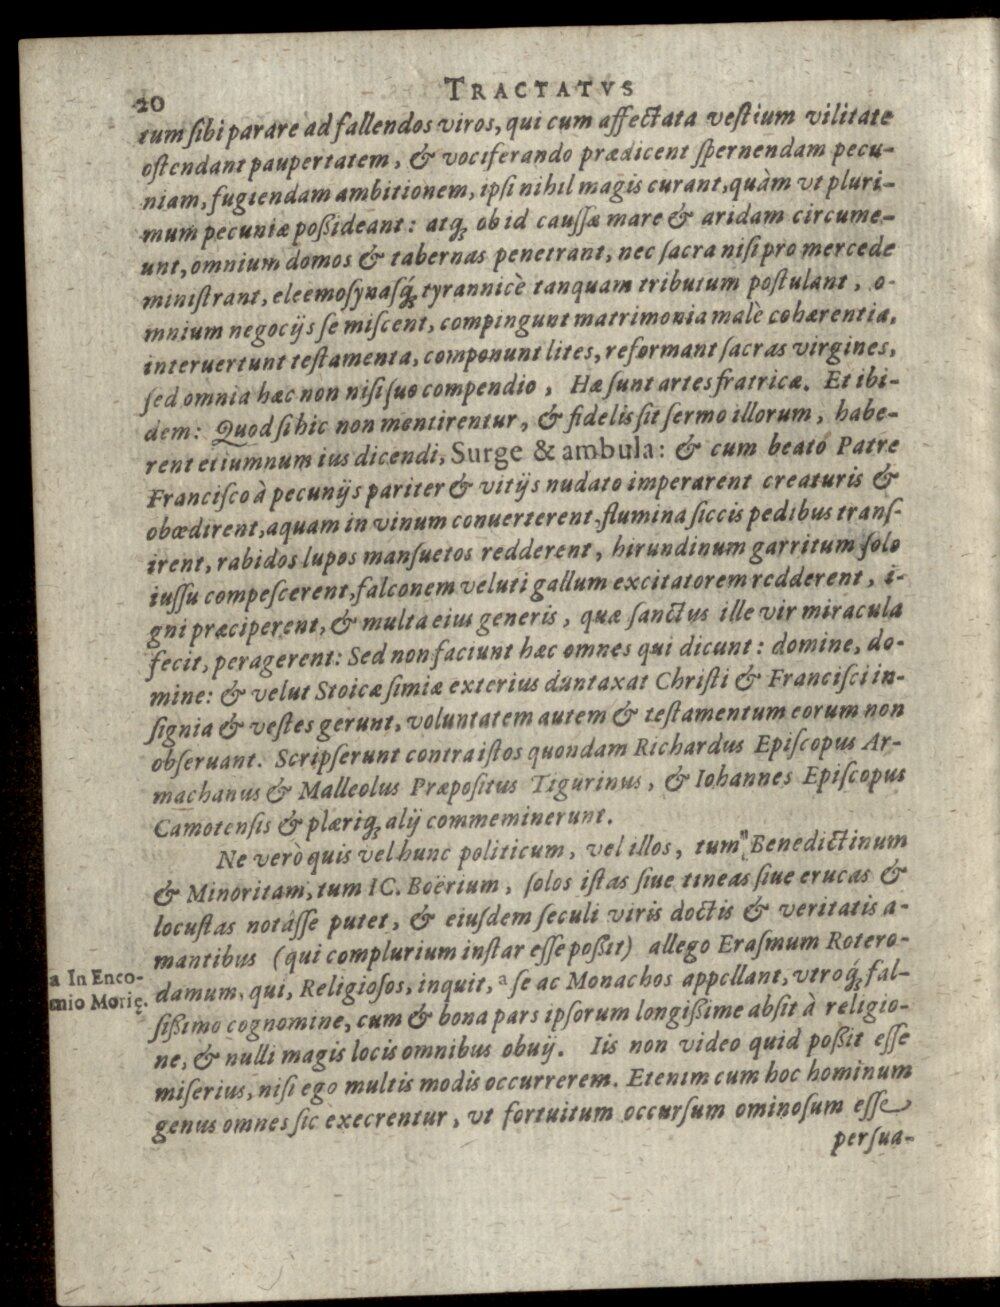 20
TRACTATVS
tum ſibi parare ad fallendos viros, qui cum affectata veſtium vilitate
oſtendant paupertatem, & vociferando prædicent ſpernendam pecu-
niam, fugiendam ambitionem, ipſi nihil magis curant, quàm vt pluri-
mum pecuniæ poßideant: atq; ob id cauſſæ mare & aridam circume-
unt, omnium domos & tabernas penetrant, nec ſacra niſi pro mercede
miniſtrant, eleemoſynaſq́; tyrannicè tanquam tributum poſtulant, o-
mnium negocijs ſe miſcent, compingunt matrimonia malè cohærentia,
interuertunt teſtamenta, componunt lites, reformant ſacras virgines,
ſed omnia hæc non niſi ſuo compendio, Hæ ſunt artes fratricæ. Et ibi-
dem: Quod ſi hic non mentirentur, & fidelis ſit ſermo illorum, habe-
rent etiumnum ius dicendi, Surge & ambula: & cum beato Patre
Franciſco à pecunijs pariter & vitijs nudato imperarent creaturis &
obœdirent, aquam in vinum conuerterent, flumina ſiccis pedibus tranſ-
irent, rabidos lupos manſuetos redderent, hirundinum garritum ſolo
iuſſu compeſcerent, falconem veluti gallum excitatorem redderent, i-
gni præciperent, & multa eius generis, quæ ſanctus ille vir miracula
fecit, peragerent: Sed non faciunt hæc omnes qui dicunt: domine, do-
mine: & velut Stoicæ ſimiæ exterius duntaxat Chriſti & Franciſci in-
ſignia & veſtes gerunt, voluntatem autem & teſtamentum eorum non
obſeruant. Scripſerunt contra iſtos quondam Richardus Epiſcopus Ar-
machanus & Malleolus Præpoſitus Tigurinus, & Iohannes Epiſcopus
Camotenſis & plæriq; alij commeminerunt.
Ne verò quis vel hunc politicum, vel illos, tum Benedictinum
& Minoritam, tum IC. Boërium, ſolos iſtas ſiue tineas ſiue erucas &
locuſtas notáſſe putet, & eiuſdem ſeculi viris doctis & veritatis a-
mantibus (qui complurium inſtar eſſe poßit) allego Eraſmum Rotero-
damum, qui, Religioſos, inquit, ª ſe ac Monachos appellant, vtroq́; fal-
ſißimo cognomine, cum & bona pars ipſorum longißime abſit à religio-
ne, & nulli magis locis omnibus obuij. Iis non video quid poßit eſſe
miſerius, niſi ego multis modis occurrerem. Etenim cum hoc hominum
genus omnes ſic execrentur, vt fortuitum occurſum ominoſum eſſe
perſua-
a In Enco-
mio Morię.